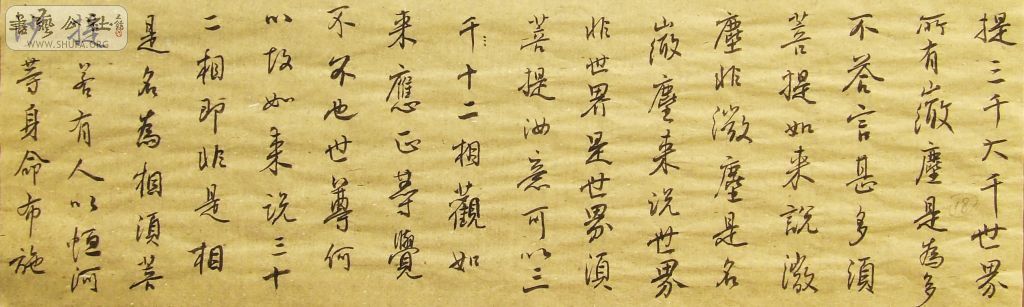 提三千大千世界
所有微塵是為多
不答言甚多須
菩提如来說微
塵非微塵是名
微塵来说世界
非世界是世界須
菩提汝意可以三
千十二相觀如
来應正等覺
不不也世尊何
以故如来说三十
二相即非是相
是名為相須菩
提若有人以恒河
沙等身命布施
書藝公社
WWW.SHUFA.ORG